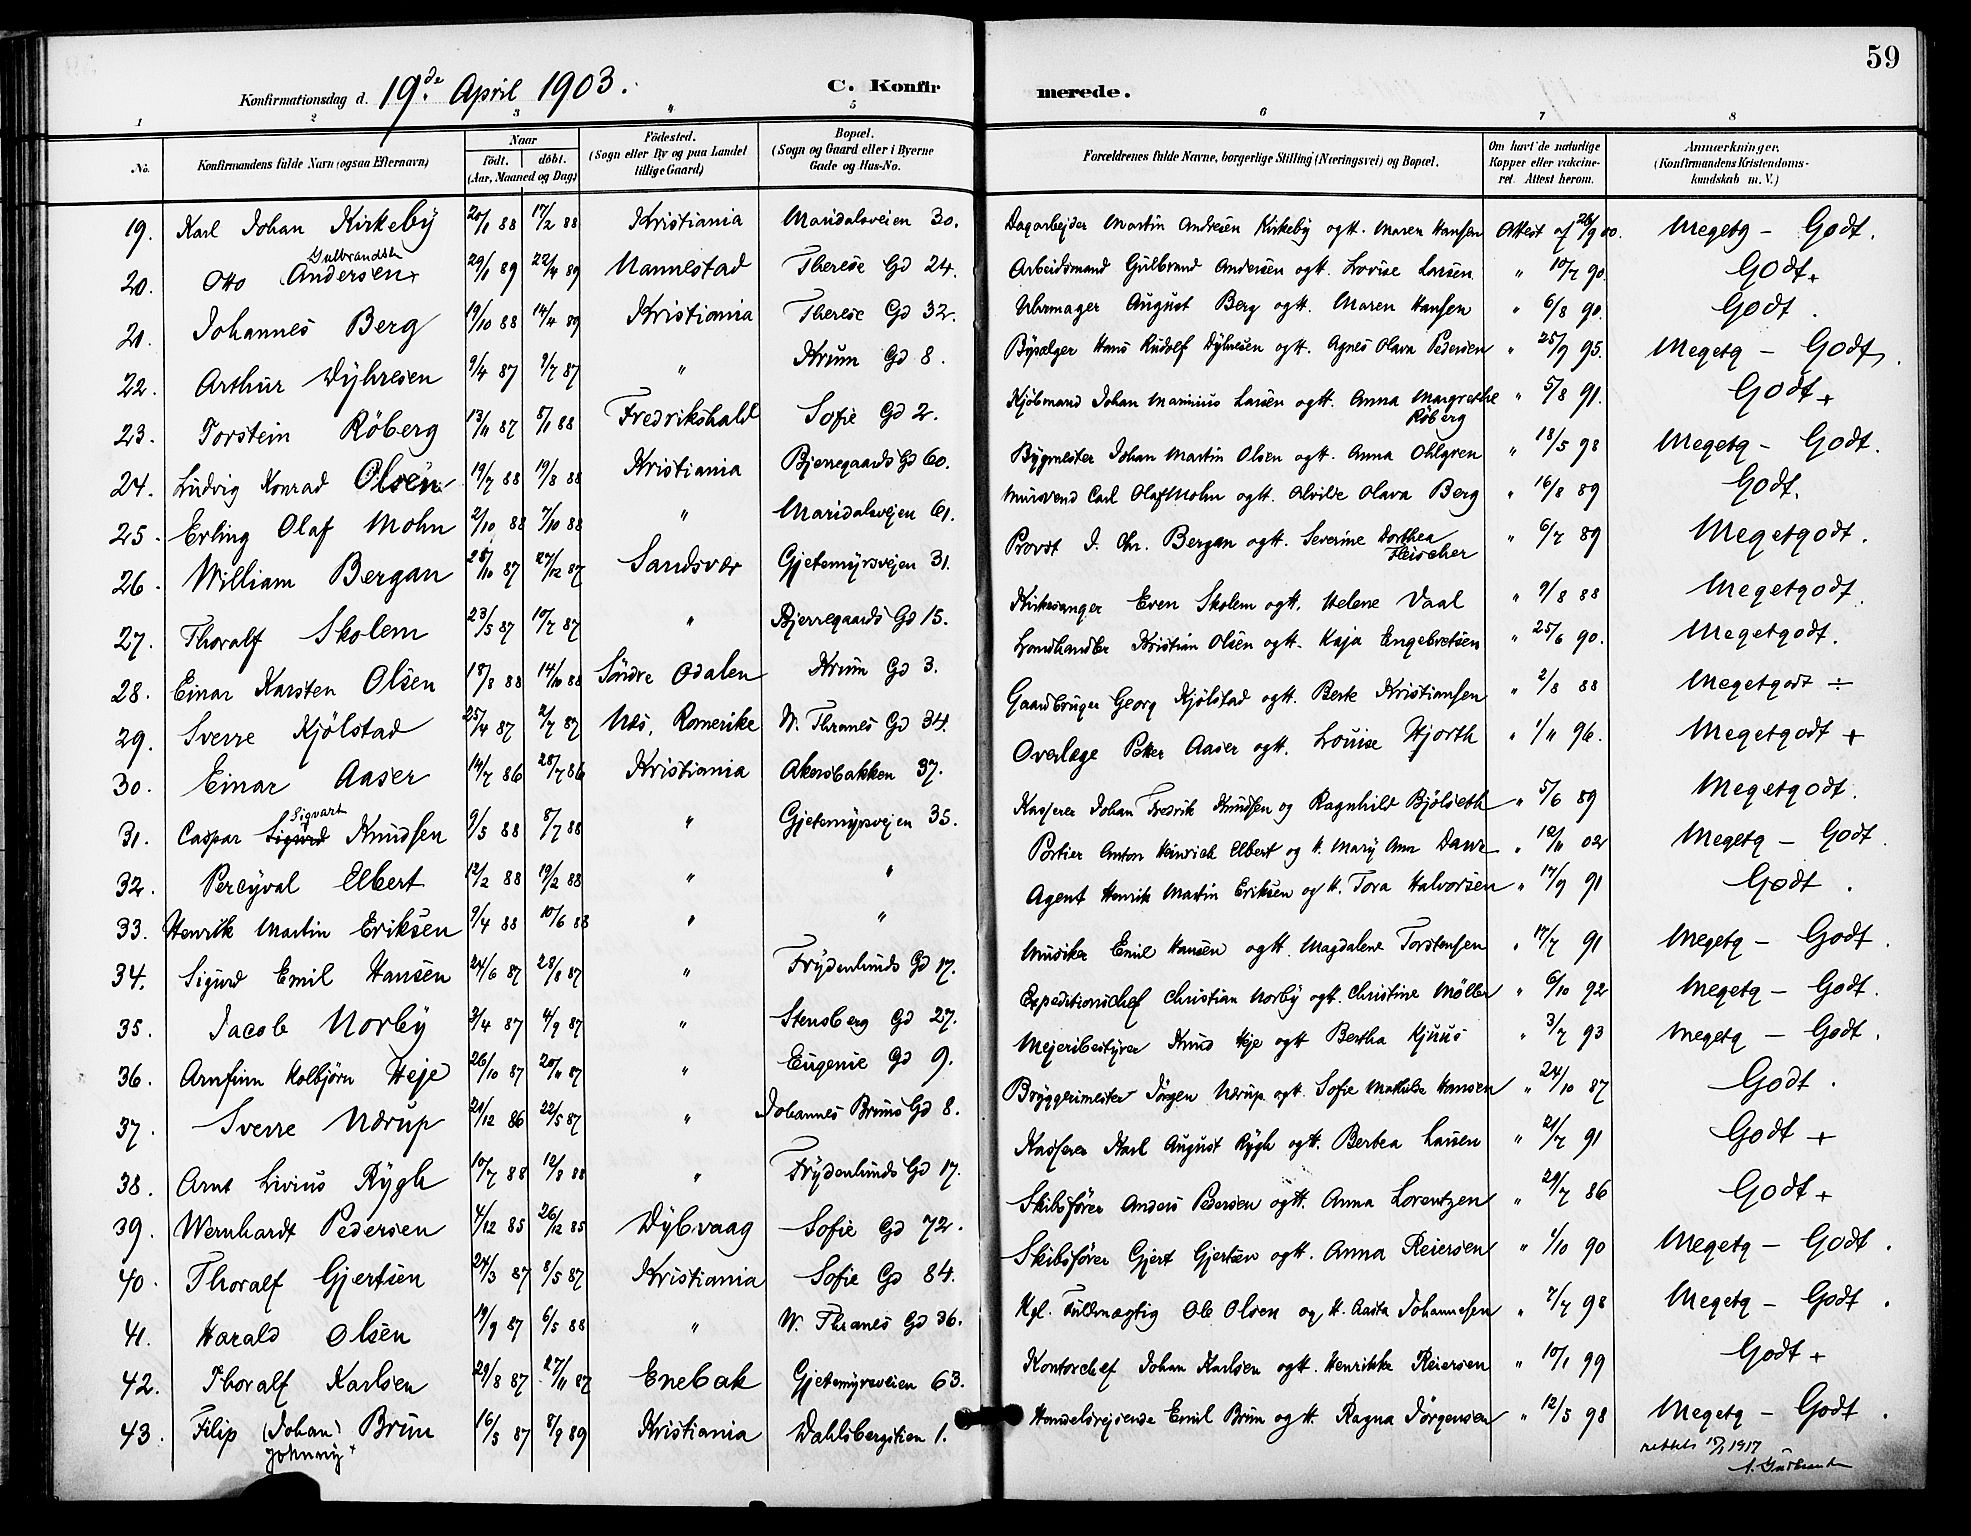 59
Konfirmationsdag d. 19de April 1903. C. Konfirmerede.
1 2 3 " 5 6 7 8
No. Konfirmandens fulde Navn (ogsaa Efternavn) Naar födt. döbt. (Aar, Maaned og Dag) Födested. (Sogn eller By og paa Landet tillige Gaard) Bopæl. (Sogn og Gaard eller i Byerne Gade og Hus-No. Forældrenes fulde Navne, borgerlige Stilling (Næringsvei) og Bopæl. Om havt de naturlige Kopper eller vakcineret. Attest herom. Anmærkninger. (Konfirmandens Kristendomskundskab m. V.)
19. Karl Johan Kirkeby 20/1 88 17/2 88 Kristiania Maridalsveien 30. Dagarbejder Martin Andresen Kirkeby ogH. Maren Hansen Attest af 26/9 00. Megetg - Godt.
20. Otto Andersen Gulbrandsen 29/1 89 22/4 89 Nannestad Therese Gd 24. Arbeidsmand Gulbrand Andersen ogH. Lovise Larsen " 10/7 90. Godt +
21. Johannes Berg 19/10 88 14/4 89 Kristiania Therese Gd 32. Uhrmager August Berg ogH. Maren Hansen " 6/8 90. Godt.
22. Arthur Dyhresen 9/4 87 9/7 87 " Krum Gd 8. Hans Rudolf Dyhresen ogH. Agnes Olava Pedersen " 25/9 95. Megetg - Godt.
23. Torstein Röberg 13/11 87 8/1 88 Fredrikshald Sofie Gd 2. Kjöbmand Johan Marinius Larsen ogH. Anna Margrethe Röberg " 5/8 91. Godt +
24. Ludvig Konrad Olsen 19/7 88 19/8 88 Kristiania Bjerregaards Gd 60. Bygmester Johan Martin Olsen ogH. Anna Ohlgren " 18/5 98 Megetg - Godt.
25. Erling Olaf Mohn 2/10 88 7/10 88 " Maridalsvejen 61. Mursvend Carl Olaf Mohn ogH. Alvilde Olava Berg " 16/8 89 Godt.
26. William Bergan 28/10 87 27/12 87 Sandsvær Gjetemyrsvejen 31. Provst J. Chr. Bergan ogH. Severine Dorthea Fleischer " 6/7 89 Megetgodt.
27. Thoralf Skolem 23/5 87 10/7 87 " Bjerregaards Gd 15. Kirkesanger Even Skolem ogH. Helene Vaal " 9/8 88 Megetgodt.
28. Einar Karsten Olsen 18/8 88 14/10 88 Söndre Odalen Krum Gd 3. Landhandler Kristian Olsen ogH. Kaja Engebretsen " 25/6 90. Megetgodt.
29. Sverre Kjölstad 25/4 87 2/7 87 Nes, Romerike W. Thranes Gd 34. Gaardbruger Georg Kjölstad ogH. Berte Kristiansen " 2/8 88 Megetgodt ÷
30. Einar Aaser 14/7 86 28/7 86 Kristiania Akersbakken 37. Overlæge Petter Aaser ogH. Louise Hjorth " 1/11 96. Megetgodt +
31. Caspar Sigurd Sigvart Knudsen 9/5 88 8/7 88 " Gjetemyrsvejen 35. Kasserer Johan Fredrik Knudsen og Ragnhild Bjölseth " 5/6 89 Megetgodt.
32. Percyval Elbert 12/2 88 19/2 88 " " Portier Anton Heinrich Elbert og H. Mary Ann " 12/11 02 Megetg - Godt.
33. Henrik Martin Eriksen 9/4 88 10/6 88 " " Agent Henrik Martin Eriksen og H. Tora Halvorsen " 17/9 91 Godt.
34. Sigurd Emil Hansen 24/6 87 28/8 87 " Frydenlunds Gd 17. Musiker Emil Hansen ogH. Magdalene Torstensen " 17/7 91 Megetg - Godt.
35. Jacob Norby 3/4 87 4/9 87 " Stensberg Gd 27. Expeditionschef Christian Norby ogH. Christine Möller " 6/10 92 Megetg - Godt.
36. Arnfinn Kolbjörn Heje 26/10 87 20/11 87 " Eugenie Gd 9. Mejeribestyrer Knud Heje ogH Bertha Kjuus " 3/7 93 Megetg - Godt.
37. Sverre Nærup 21/12 86 22/5 87 " Johannes Bruns Gd 8. Bryggerimester Jörgen Nærup ogH. Sofie Mathilde Hansen " 24/10 87 Godt.
38. Arnt Livius Rygh 10/7 88 12/8 88 " Frydenlunds Gd 17. Kasserer Karl August Rygh ogH. Berbea Larsen " 21/7 91 Godt +
39. Wernhardt Pedersen 4/12 85 26/12 85 Dybvaag Sofie Gd 72. Skibsförer Anders Pedersen ogH. Anna Lorentzen " 29/7 86 Godt +
40. Thoralf Gjertsen 24/3 87 8/5 87 Kristiania Sofie Gd 84. Skibsförer Gjert Gjertsen ogH. Anna Reiersen " 4/10 90 Megetg - Godt.
41. Harald Olsen 19/9 87 6/5 88 " W. Thranes Gd 36. Kgl. Fuldmægtig Ole Olsen og H. Aasta Johannesen " 7/7 98 Megetg - Godt.
42. Thoralf Karlsen 29/8 87 27/11 87 Enebak Gjetemyrsveien 63. Kontorchef Johan Karlsen ogH. Henrikke Reiersen " 10/1 99 Godt +
43. Filip (Johan) Brun 16/5 87 8/9 89 Kristiania Dahlsbergstien 1. Handelsrejsende Emil Brun og H. Ragna Jörgensen " 12/5 98 Megetg - Godt.
Johnny + rettet 1917